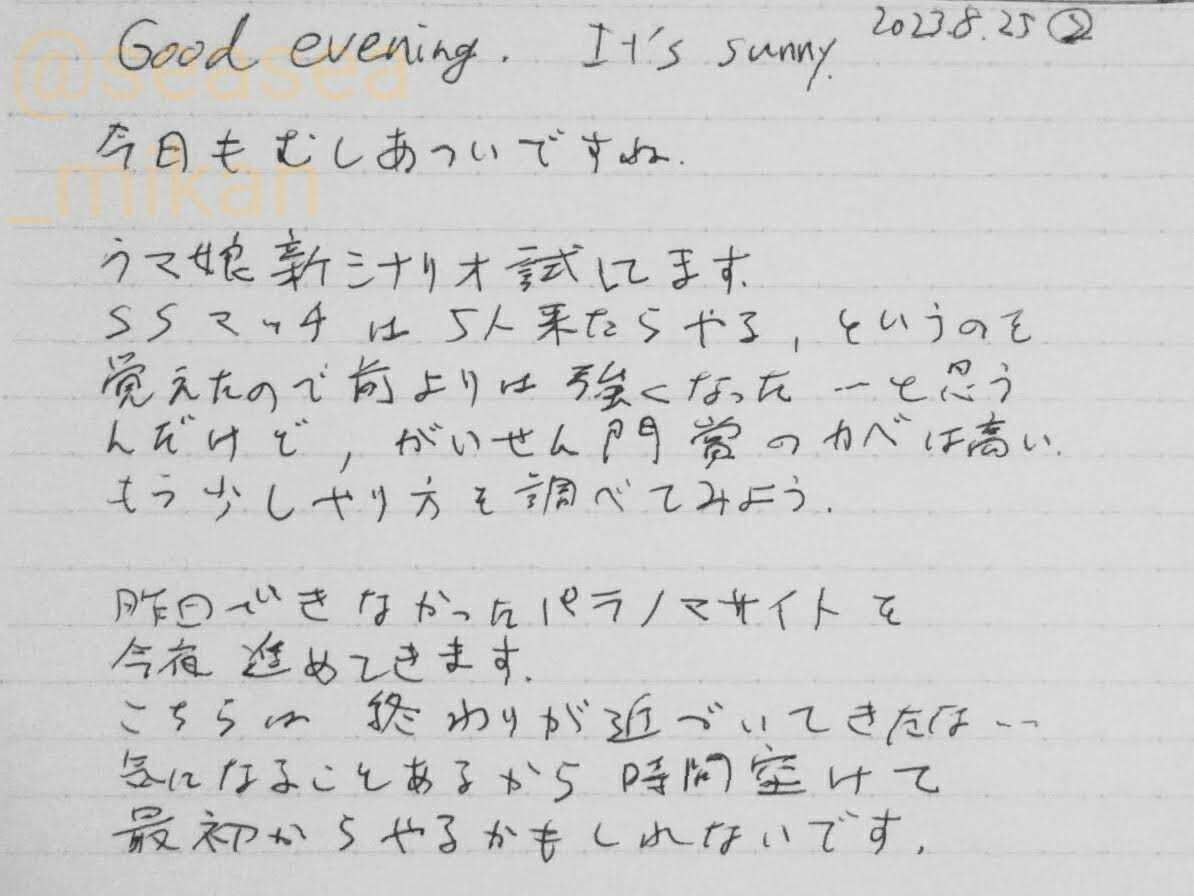 2023.8.25 ②
Good evening. It's sunny.
@seasea
今日もむしあついですね.
_mikan
ウマ娘新シナリオ試してます.
SSマッチは5人来たらやる, というのを
覚えたので前よりは強くなった…と思う
んだけど, がいせん門賞のカベは高い.
もう少しやり方を調べてみよう.
昨日できなかったパラノマサイトを
今夜進めてきます.
こちらは終わりが近づいてきたな…
気になることあるから時間空けて
最初からやるかもしれないです.